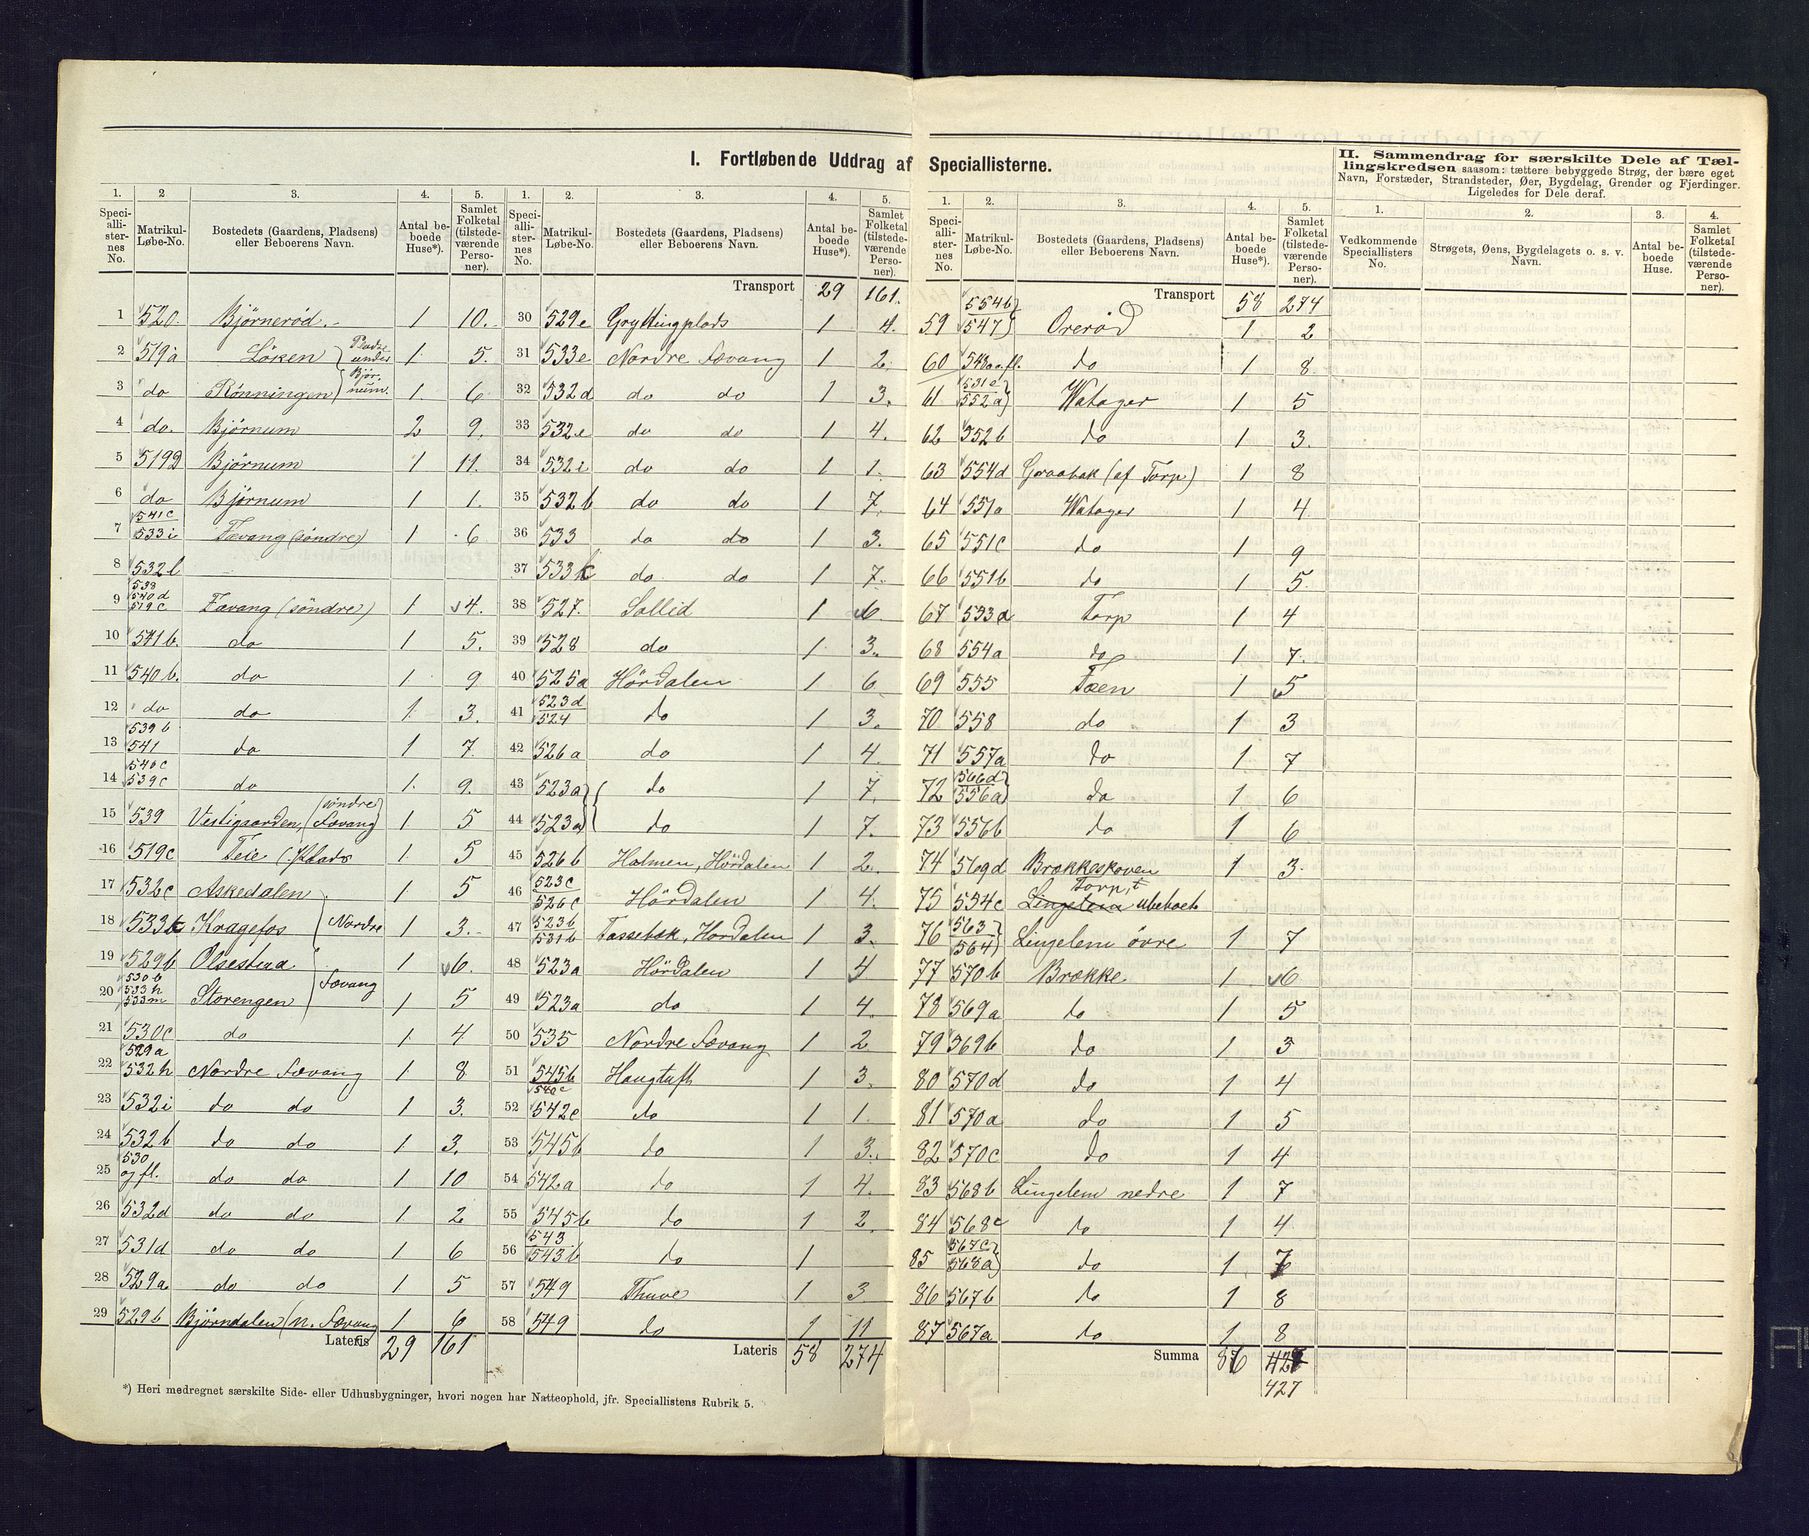 I. Fortløbende Uddrag af Speciallisterne.
1. Speciallisternes No. | 2 Matrikul-Løbe-No. | 3. Bostedets (Gaardens, Pladsens) eller Beboerens Navn. | 4. Antal beboede Huse*). | 5. Samlet Folketal (tilstedeværende Personer).
1 520. Bjørnerød. 1 10.
2 519a Løken (Pladse under Bjørnum. 1 5.
3 do Rønningen 1 6
4 do. Bjørnum 2 9.
5 519d Bjørnum 1 11.
6 do Bjørnum 1 1.
7 541c 533i Fævang (søndre) 1 6
8 532l
9 538 540d 519c Fævang (søndre) 1 4.
10 541b. do 1 5.
11 540b. do 1 9
12 do do 1 3.
13 539b 541 do 1 7.
14 540c 539c do 1 9.
15 539 Vestigaarden, (søndre Fævang) 1 5
16 519c Teie (Plads 1 5
17 532c Askedalen 1 5
18 533k Kragefos (Nordre 1 3.
19 529b Olsestua 1 6.
20 530b 533h 533m Storengen Fævang 1 5
21 530c do 1 4
22 529a 532h Nordre Fævang 1 8
23 532i do do 1 3.
24 532b do do 1 3.
25 530 og fl. do do 1 10
26 532d do do 1 2
27 531d do do 1 6
28 529a do do 1 5
29 529b Bjørndalen (n. Fævang 1 6
Lateris 29 161
*) Heri medregnet særskilte Side- eller Udhusbygninger, hvori nogen har Natteophold, jfr. Speciallistens Rubrik 5.
1. Speciallisternes No. | 2. Matrikul-Løbe-No. | 3. Bostedets (Gaardens, Pladsens) eller Beboerens Navn. | 4. Antal beboede Huse*). | 5. Samlet Folketal (tilstedeværende Personer).
Transport 29 161.
30 529e Gryttingplads 1 4.
31 533e Nordre Fævang 1 2.
32 532d do do 1 3.
33 532e do do 1 4.
34 532i do do 1 1.
35 532b do do 1 7.
36 533 do do 1 3.
37 533k do do 1 7.
38 527. Sollid 1 6.
39 528 do 1 3.
40 525a Hørdalen 1 6
41 523d 524 do 1 3.
42 526a do 1 4.
43 523a do 1 7.
44 523a do 1 7.
45 526b Holmen, Hørdalen 1 2.
46 523c 526c Hørdalen 1 4.
47 523b 531b Tassebæk, Hørdalen 1 3.
48 523a Hørdalen 1 4
49 523a do 1 4.
50 535 Nordre Fævang 1 2.
51 545b 540c Haugtuft 1 3.
52 542c do 1 1.
53 545b do 1 3.
54 542a do 1 4.
55 545b do 1 2.
56 543 543b do 1
57 549 Thuve 1 3.
58 549 do 1 11
Lateris 58 274
1. Speciallisternes No. | 2. Matrikul-Løbe-No. | 3. Bostedets (Gaardens, Pladsens) eller Beboerens Navn. | 4. Antal beboede Huse*). | 5. Samlet Folketal (tilstedeværende Personer).
Transport 58 274
59 554b 547 Orerød 1 2
60 543a o.fl. do 1 8
61 531e 552a Watager 1 5
62 552b do 1 3.
63 554d Graabæk (af Torp) 1 8
64 551a Watager 1 4
65 551c do 1 9
66 551b do 1 5.
67 553a Torp 1 4
68 554a do 1 7.
69 555 Fæen 1 5
70 558 do 1 3
71 557a do 1 7
72 566d 556a do 1 6
73 556b do 1 6
74 569d Brækkeskoven 1 3.
75 554c Lingelem Torp, ubeboet
76 563 564 Lingelem øvre 1 7
77 570b Brække 1 6
78 569a do 1 5
79 569b do 1 3
80 570d do 1 4
81 570a do 1 5
82 570c do 1 4
83 568b Lingelem nedre 1 7
84 568c do 1 4
85 567c 568a do 1 7
86 567b do 1 8
87 567a do 1 8
Summa 86
427
II. Sammendrag for særskilte Dele af Tællingskredsen saasom: tættere bebyggede Strøg, der bære eget Navn, Forstæder, Strandsteder, Øer, Bygdelag, Grender og Fjerdinger. Ligeledes for Dele deraf.
1. Vedkommende Speciallisters No. | 2. Strøgets, Øens, Bygdelagets o. s. v. Navn. | 3. Antal beboede Huse. | 4. Samlet Folketal (tilstedeværende Personer).